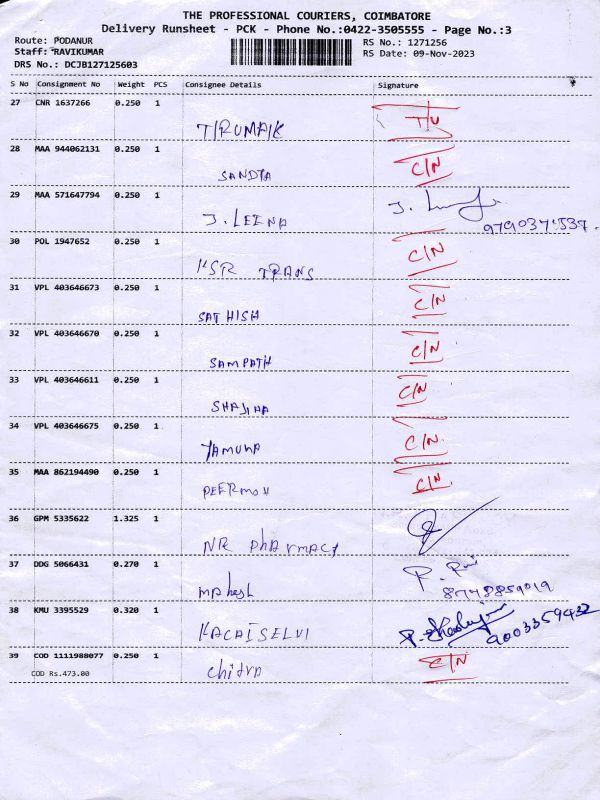 THE PROFESSIONAL COURIERS, COIMBATORE
Delivery Runsheet - PCK - Phone No.:0422-3505555 - Page No.:3
Route: PODANUR RS No.: 1271256
Staff: RAVIKUMAR RS Date: 09-Nov-2023
DRS No.: DCJB127125603
S No Consignment No Weight PCS Consignee Details Signature
27 CNR 1637266 0.250 1
TIRUMPIK T/U
28 MAA 944062131 0.250 1
SANDIA C/N
29 MAA 571647794 0.250 1
J. LEENA J.
30 POL 1947652 0.250 1
KSR TRANS C/N
31 VPL 403646673 0.250 1
SATHISH C/N
32 VPL 403646670 0.250 1
SAMPATH C/N
33 VPL 403646611 0.250 1
SHAJINA C/N
34 VPL 403646675 0.250 1
YAMUNA C/N
35 MAA 862194490 0.250 1
PEERMOH C/N
36 GPM 5335622 1.325 1
NR PHARMACY
37 DDG 5066431 0.270 1
Mahesh 8778859019
38 KMU 3395529 0.320 1
KACAISELVI 9003359432
39 COD 1111988077 0.250 1 C/N
COD Rs.473.00 Chitra